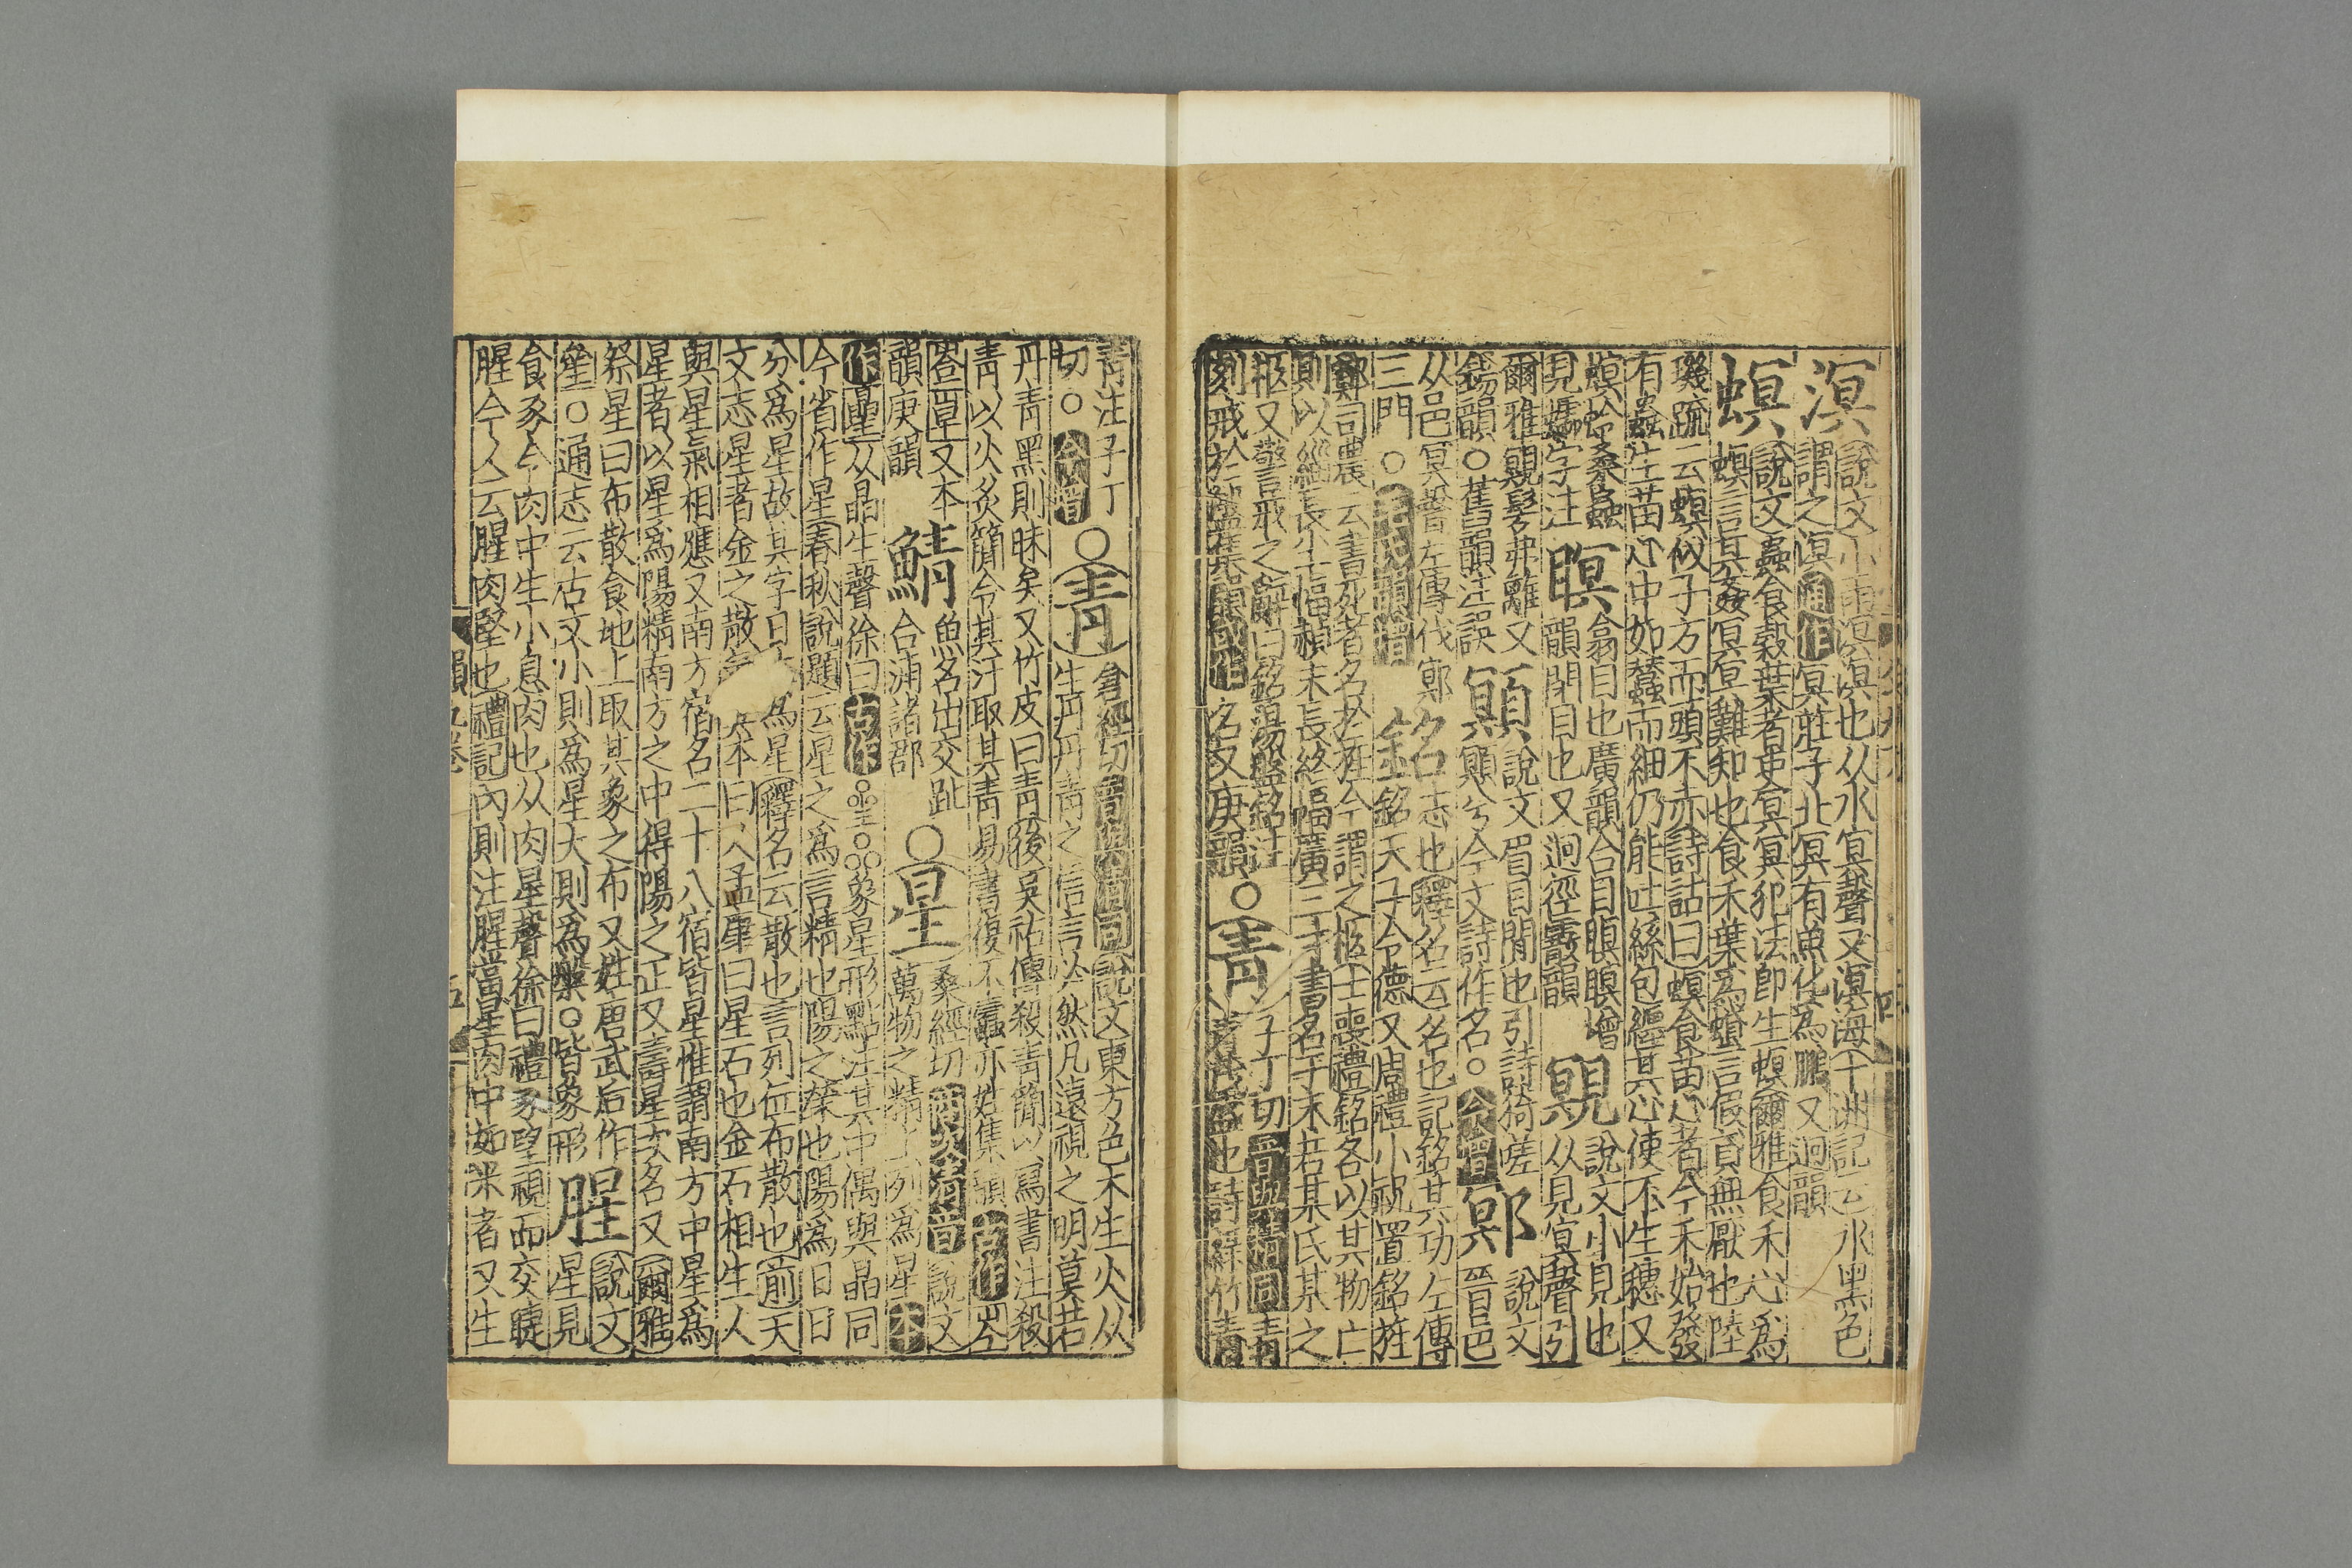 溟
說文小雨溟溟也从水冥聲又溟海十洲記云水黑色
謂之溟通作冥莊子北冥有魚化為鵬又迥韻
螟
說文蟲食穀葉者吏冥冥犯法即生螟爾雅食禾心為
螟言其姦冥冥難知也食禾葉為蟘言假貸無厭也陸
璣疏云螟似子方而頭不赤詩詁曰螟食苗心者今禾始發
有蟲生苗心中如蠶而細仍能吐絲包纏其心使不生穗又
螟蛉桑蟲
見蟎字注
瞑
翕目也廣韻合目瞑瞑增
韻閉目也又迥徑霰韻
覭
說文小見也
从見冥聲引
爾雅覭髳茀離又
錫韻○舊韻注誤
顊
說文眉目閒也引詩猗嗟
顊兮今文詩作名○今增
鄍
說文
晉邑
从邑冥聲左傳伐鄍
三門○平水韻增
銘
志也釋名云名也記銘其功左傳
銘天子令德又周禮小祝置銘旌
鄭司農云書死者名於旌今謂之柩士喪禮銘各以其物亡
則以緇長半幅赬末長終幅廣三寸書名于末若某氏某之
柩又警戒之辭曰銘湯盤銘注
刻戒於盤集韻或作名又庚韻
○靑
子丁切音與精同靑
靑茂盛也詩綠竹靑
靑注子丁
切○今增
○靑
倉經切音與清同說文東方色木生火从
生丹丹靑之信言必然凡遠視之明莫若
丹靑黑則昧矣又竹皮曰靑後吳祐傳殺靑簡以寫書注殺
靑以火炙簡令其汗取其靑易書復不蠹亦姓集韻古作岑
㟛𡴑又本
韻庚韻
鯖
魚名出交趾
合浦諸郡
○星
桑經切次宮清次音說文
萬物之精上列為星本
作曐从晶生聲徐曰古作○聖○象星形點注其中偶與晶同
今省作星春秋說題云星之為言精也陽之榮也陽為日日
分為星故其字日生為星釋名云散也言列位布散也前天
文志星者金之散氣本曰人孟康曰星石也金石相生人
與星氣相應又南方宿名二十八宿皆星惟謂南方中星為
星者以星為陽精南方之中得陽之正又壽星次名又爾雅
祭星曰布散食地上取其象之布又姓唐武后作
○○通志云古文小則為星大則為○○皆象形
腥
說文
星見
食豕令肉中生小息肉也从肉星聲徐曰禮豕望視而交睫
腥令人云腥肉堅也禮記內則注腥當星肉中如米者又生